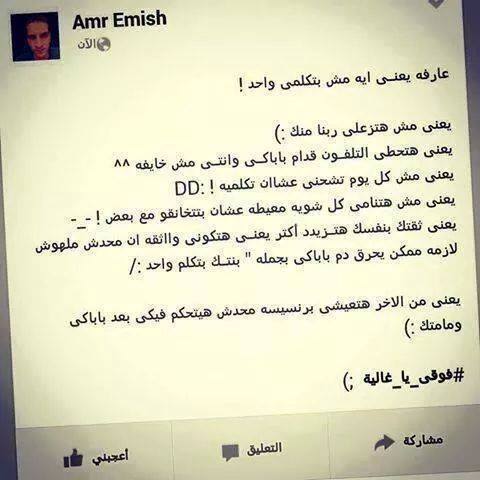 Amr Emish
الآن
عارفه يعنــى ايه مش بتكلمى واحد !
يعنى مش هتزعلى ربنا منك :)
يعنى هتحطى التلفــون قدام باباكــى وانتــى مش خايفه ^^
يعنى مش كل يوم تشحنى عشاان تكلميه ! :DD
يعنى مش هتنامى كل شويه معيطه عشان بتتخانقو مع بعض ! -_-
يعنى ثقتك بنفسك هتــزيدد أكتر يعنــى هتكونى وااثقه ان محدش ملهوش
لازمه ممكن يحرق دم باباكى بجمله " بنتــك بتكلم واحد :/
يعنى من الاخر هتعيشى برنسيسه محدش هيتحكم فيكى بعد باباكى
ومامتك :)
#فوقى_يا_غالية ;)
أعجبني
التعليق
مشاركة